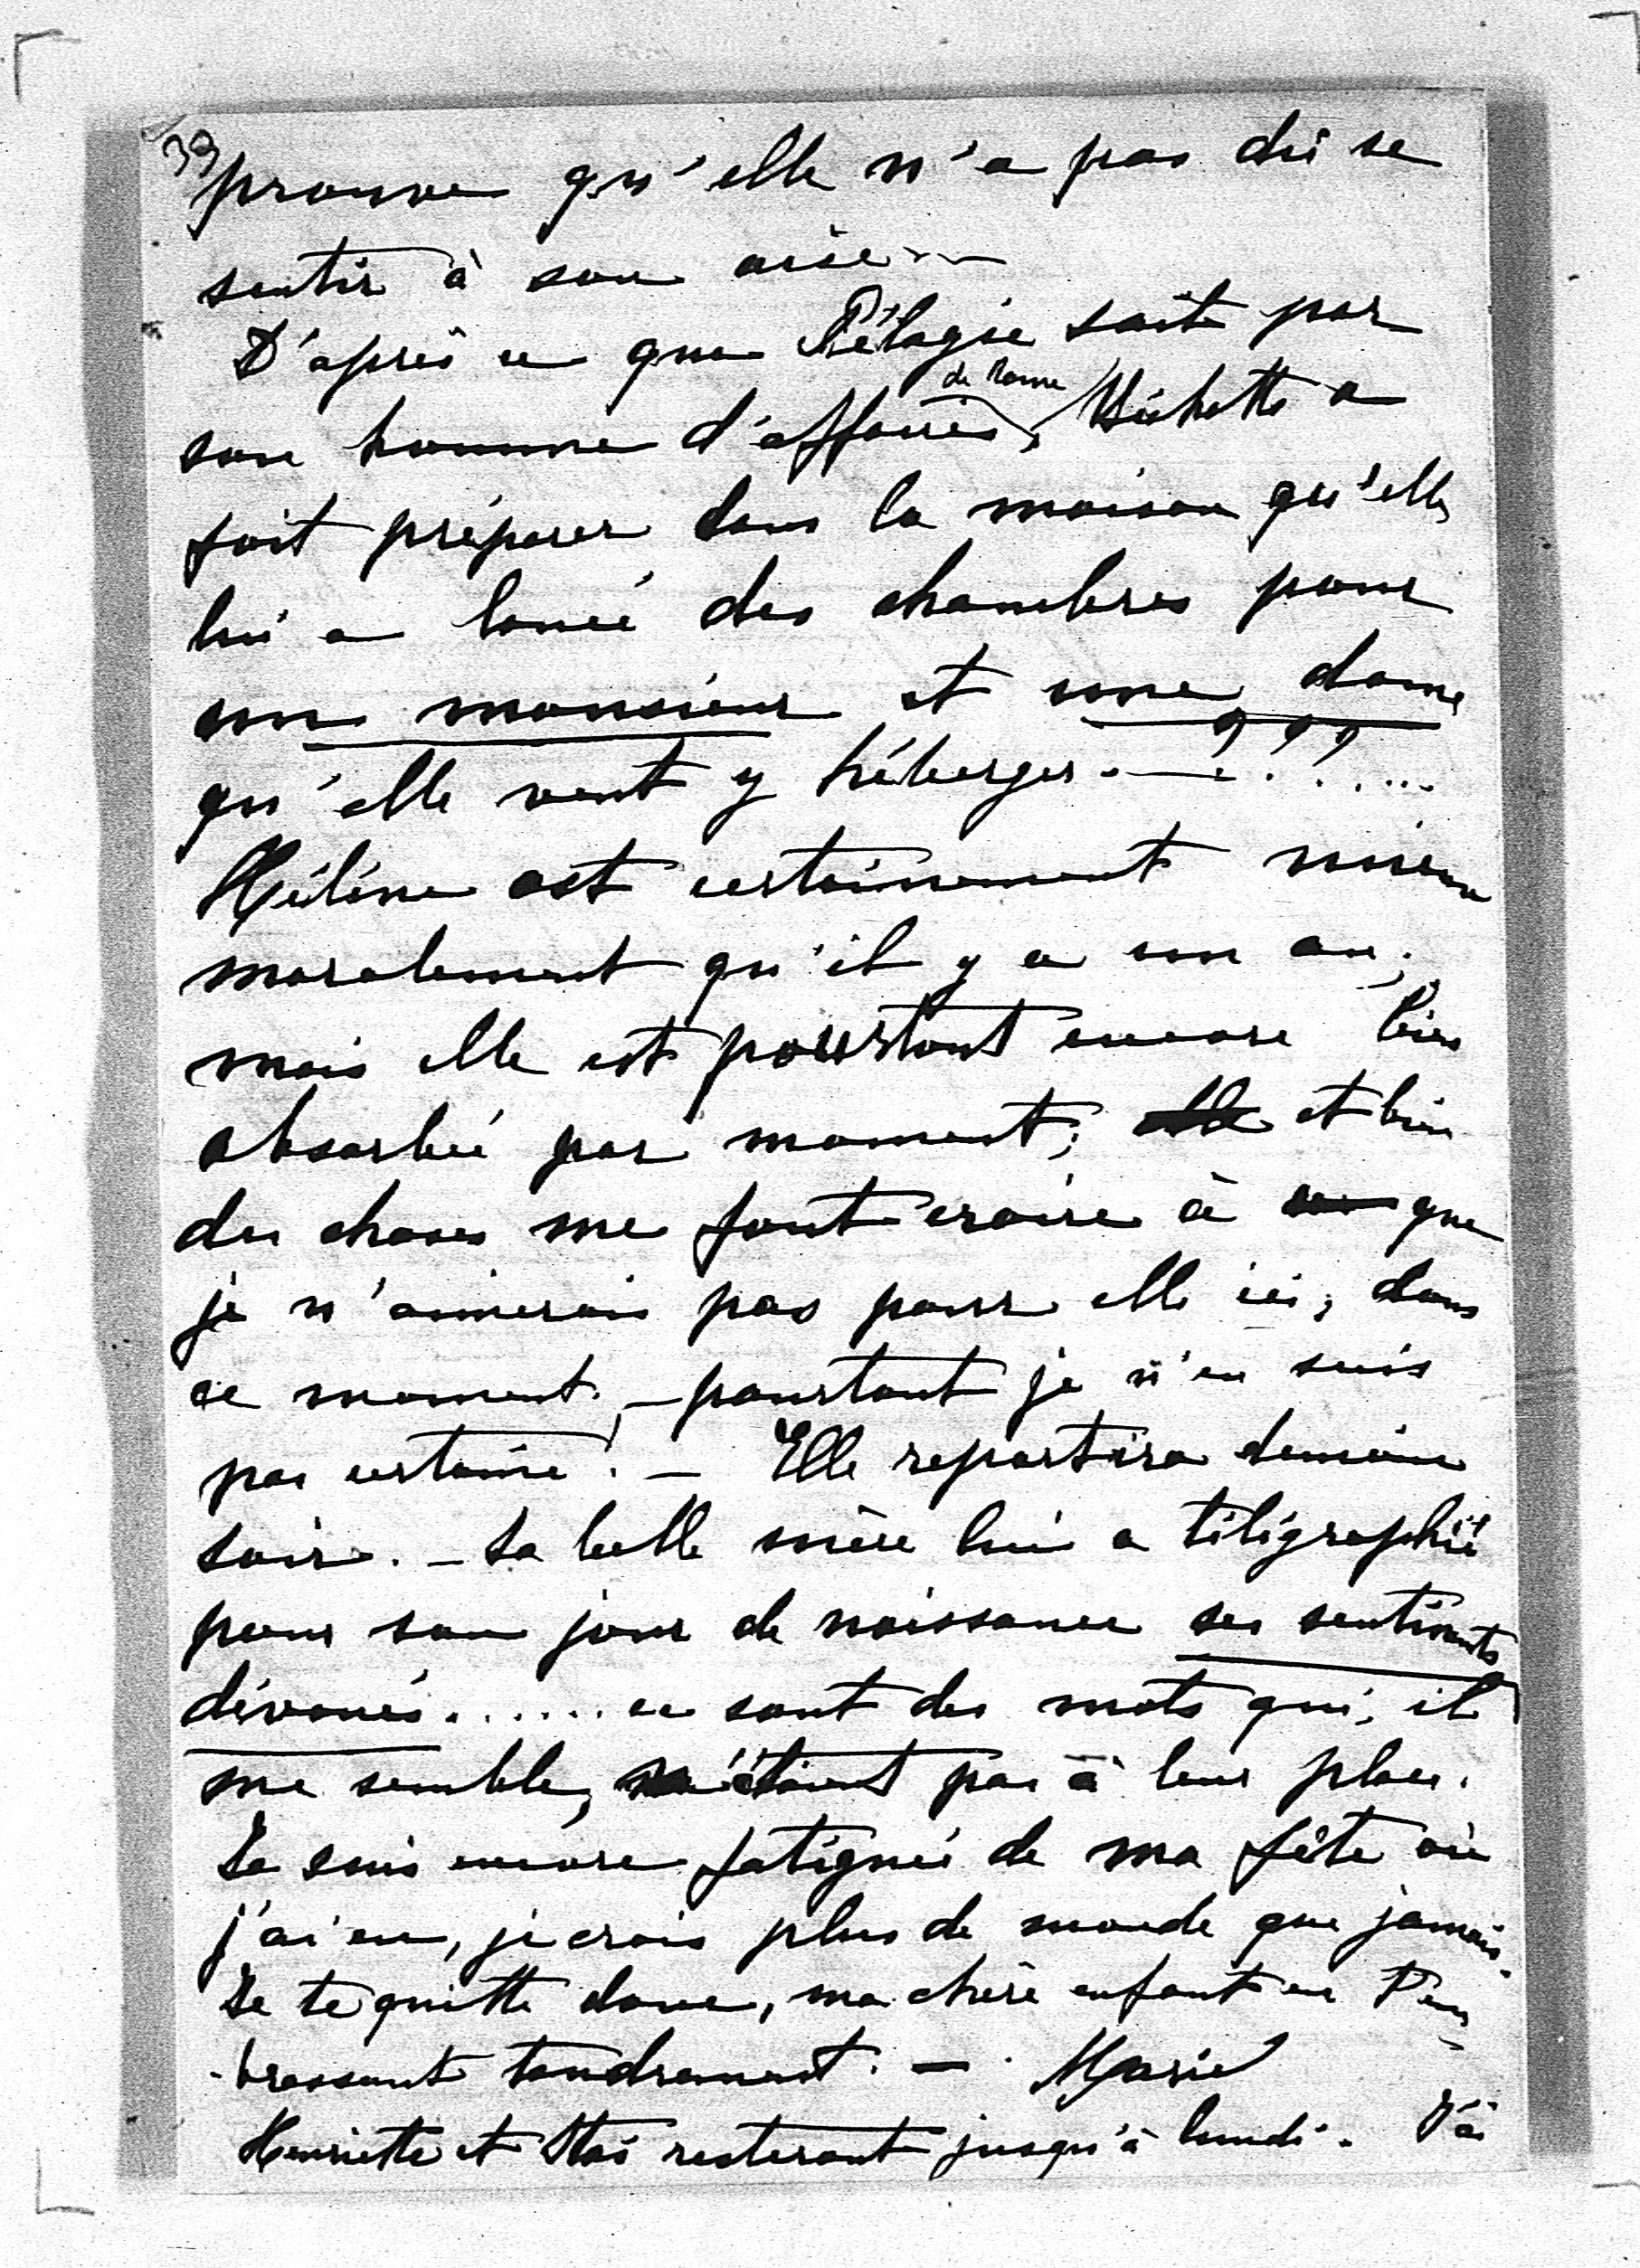 39
prouve qu'elle n'a pas dû se
sentir à son aise...
D'après ce que Pélagie sait par
son homme d'affaires de Rome, Bichette a
fait préparer dans la maison qu'elle
lui a loué des chambres pour
un monsieur et une dame
qu'elle veut y héberger. — ???....
Hélène est certainement mieux
moralement qu'il y a un an;
mais elle est pourtant encore bien
absorbée par moment; et bien
des choses me font croire à que
je n'aimerais pas pour elle ici, dans
ce moment. — pourtant je n'en suis
pas certaine! — Elle repartira demain
soir. — Sa belle mère lui a télégraphié
pour son jour de naissance ses sentiments
dévoués....... ce sont des mots qui, il
me semble, n'étaient pas à leur place.
Je suis encore fatiguée de ma fête où
j'ai eu, je crois plus de monde que jamais.
Je te quitte donc, ma chère enfant en t'em
-brassant tendrement. — Marie
Henriette et Stas resteront jusqu'à lundi. J'ai